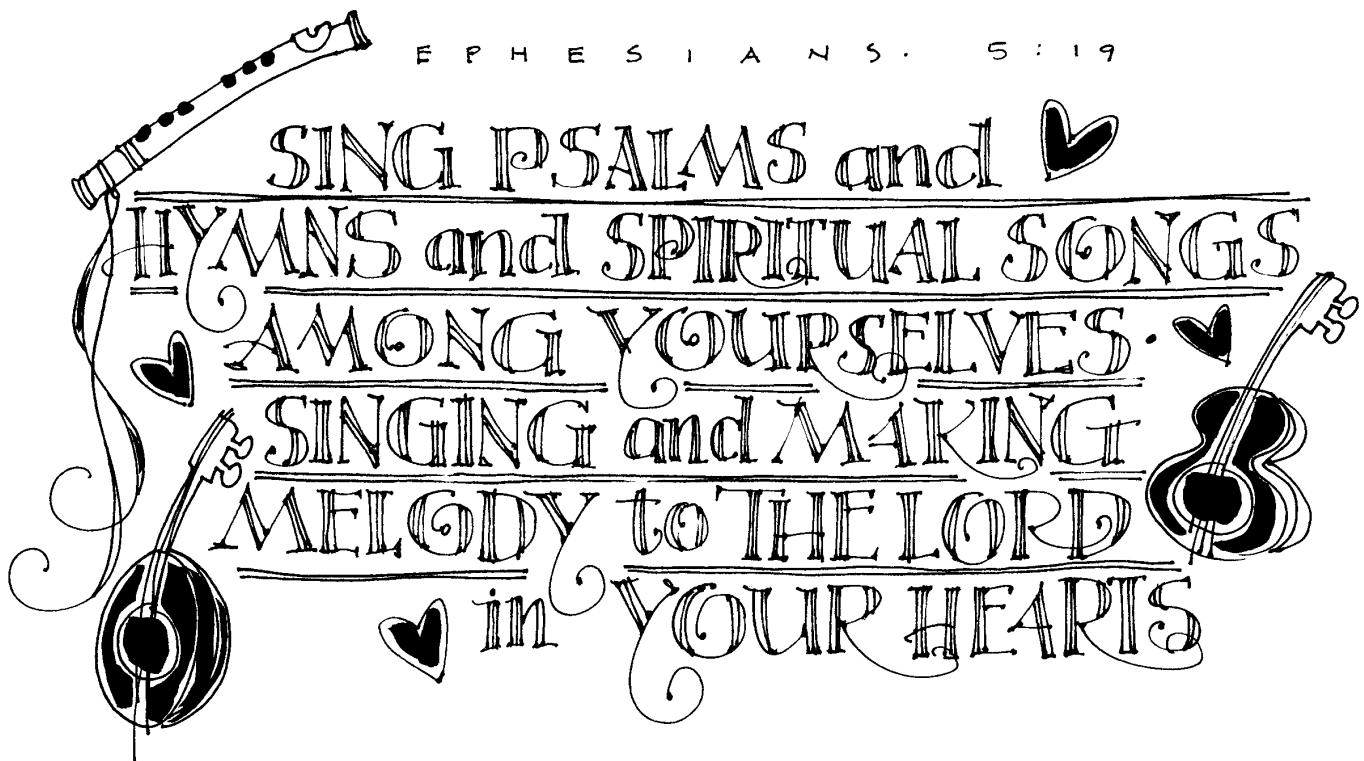 EPHESIANS. 5:19
SING PSALMS and
HYMNS and SPIRITUAL SONGS
AMONG YOURSELVES.
SINGING and MAKING
MELODY to THE LORD
in YOUR HEARTS